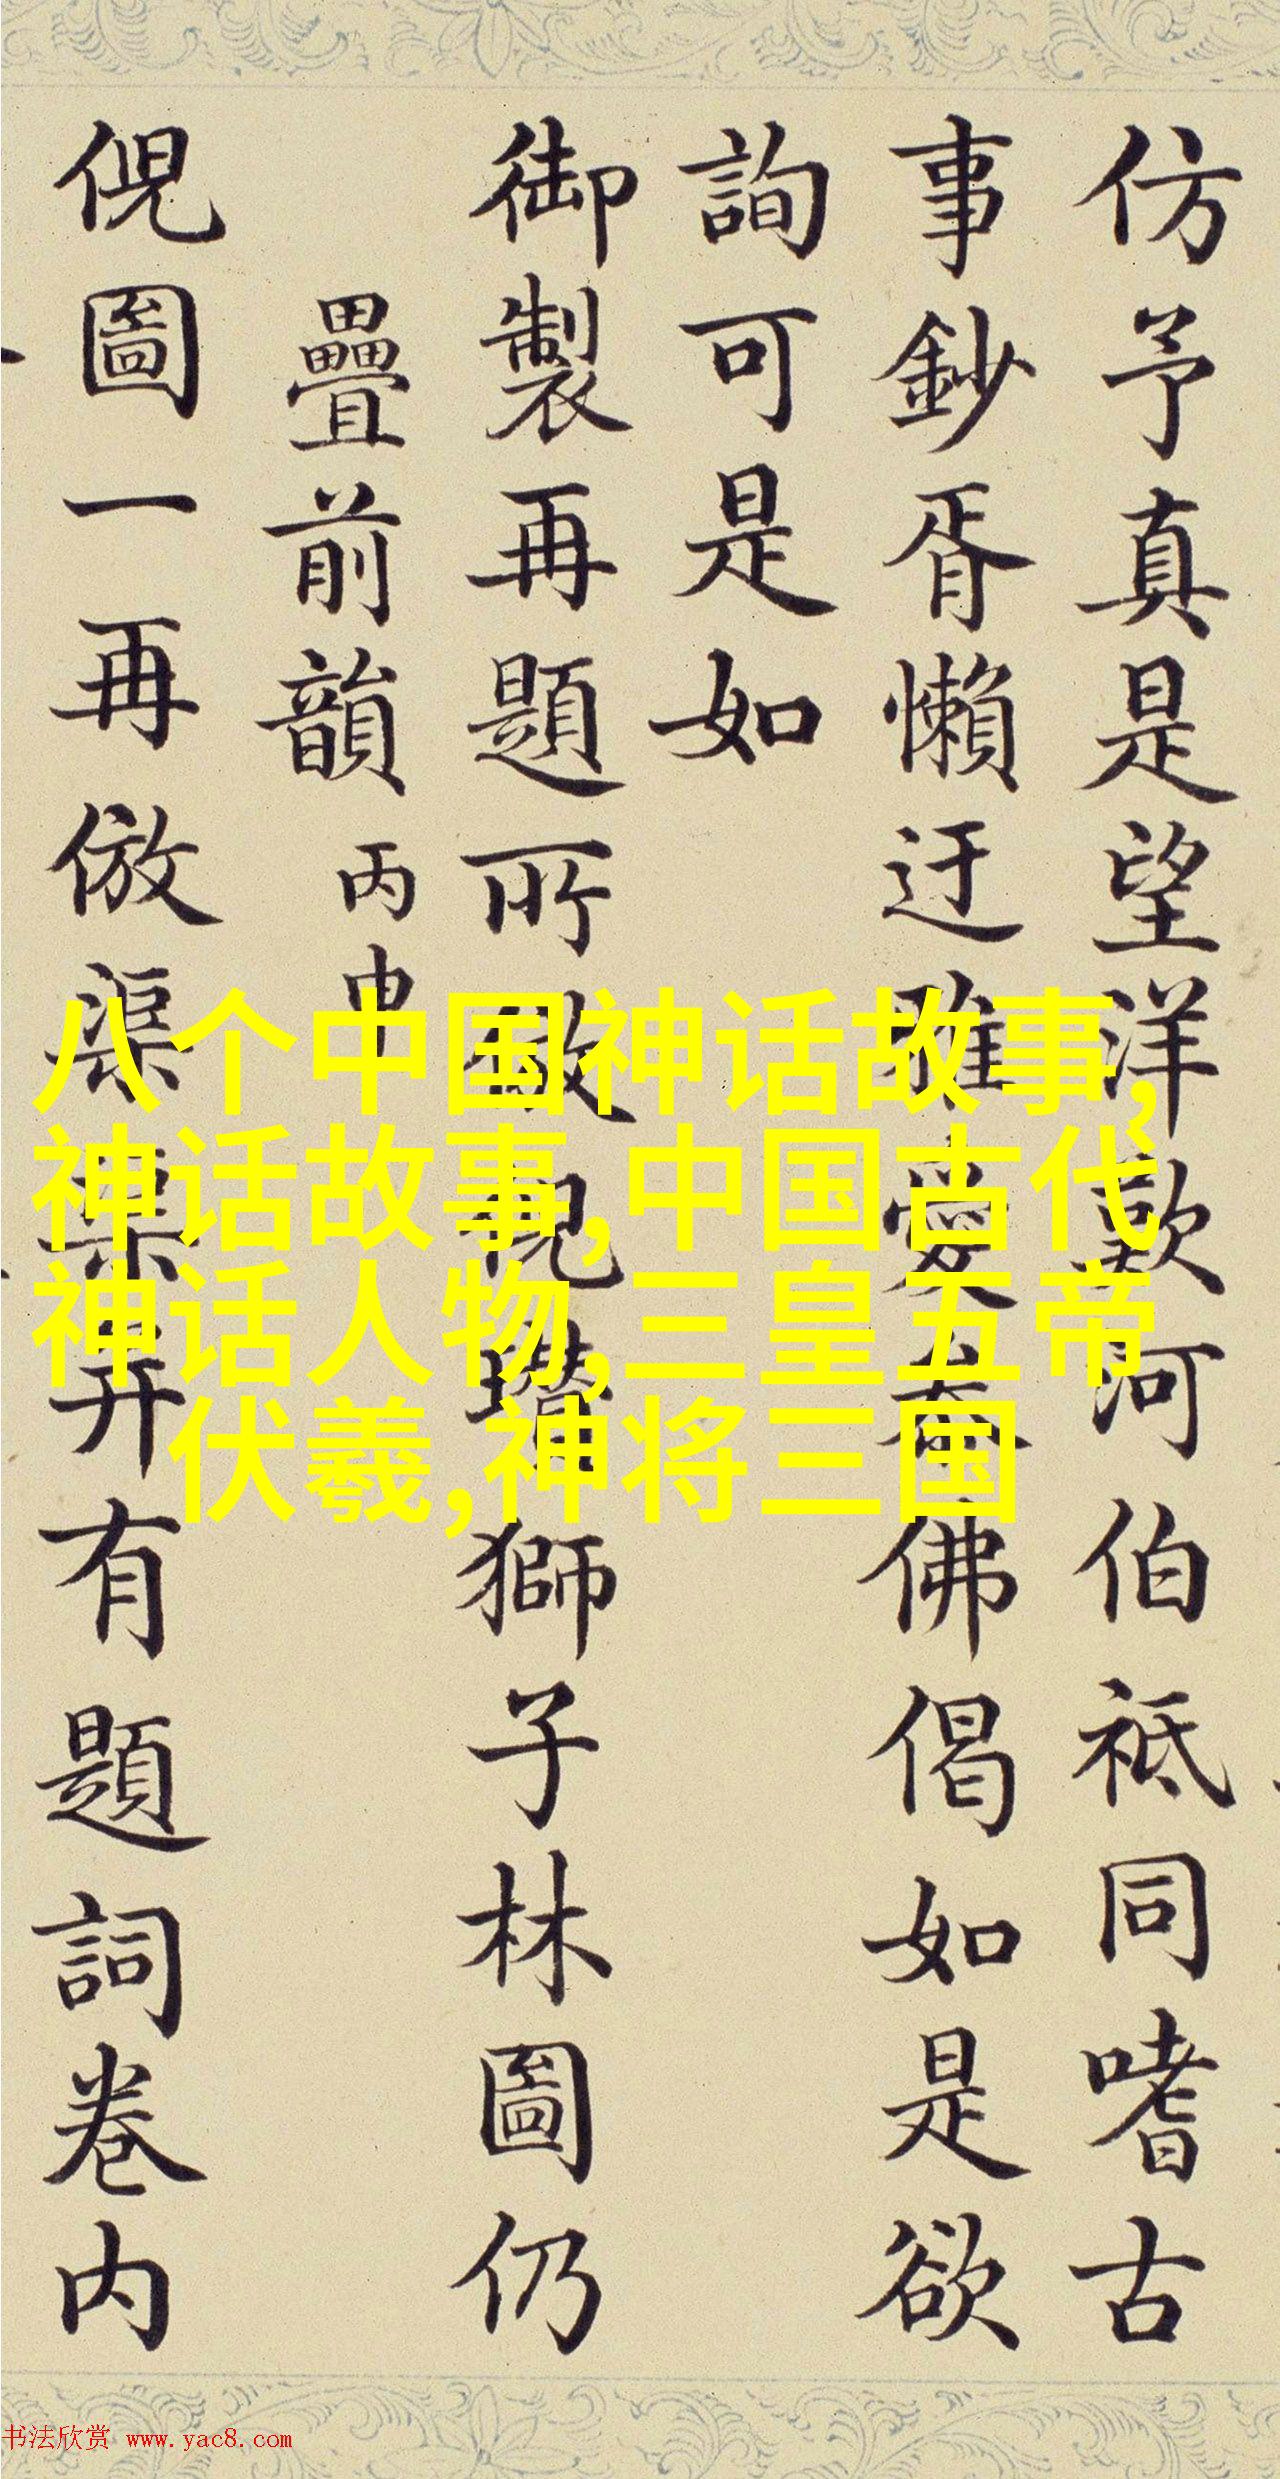 仿予真是望洋歎河伯祗同嗜古
事鈔胥懶迂雅愛奉佛偈如是欲
詢可是如
御製再題所倣倪瓚獅子林圖仍
疊前韻 丙申
倪圖一再倣渠渠弆有題詞卷内
八个中国神话故事,
神话故事,中国古代
神话人物,三皇五帝
伏羲,神将三国
书法欣赏 www.yac8.com